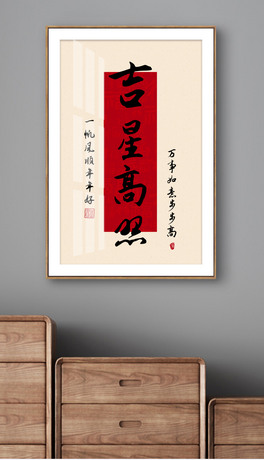 吉星高照
万事如意步步高
一帆风顺年年好